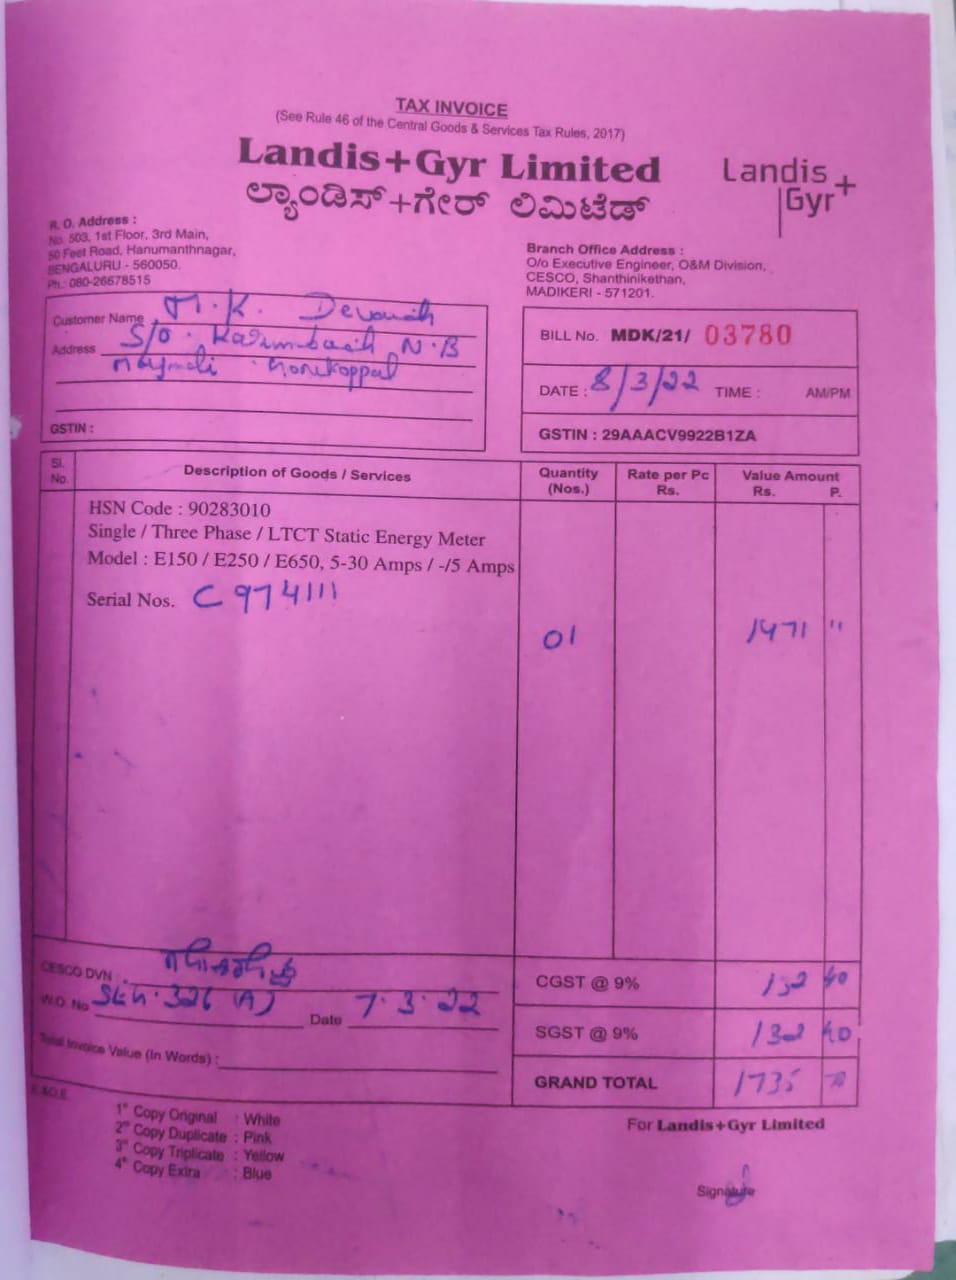 TAX INVOICE
(See Rule 46 of the Central Goods & Services Tax Rules, 2017)
Landis+Gyr Limited
ಲ್ಯಾಂಡಿಸ್+ಗೇರ್ ಲಿಮಿಟೆಡ್
Landis+
Gyr
R. O. Address :
No. 503, 1st Floor, 3rd Main,
50 Feet Road, Hanumanthnagar,
BENGALURU - 560050.
Ph.: 080-26678515
Branch Office Address :
O/o Executive Engineer, O&M Division,
CESCO, Shanthinikethan,
MADIKERI - 571201.
Customer Name M.K.
Address S/o. N.B
Gonikoppal
GSTIN :
BILL No. MDK/21/ 03780
DATE : 8/3/22 TIME : AM/PM
GSTIN : 29AAACV9922B1ZA
Sl. No. Description of Goods / Services Quantity (Nos.) Rate per Pc Rs. Value Amount Rs. P.
HSN Code : 90283010
Single / Three Phase / LTCT Static Energy Meter
Model : E150 / E250 / E650, 5-30 Amps / -/5 Amps
Serial Nos. C974111
01 1471 "
CESCO DVN :
W.O. No 326 (A) Date 7.3.22
Total Invoice Value (In Words) :
CGST @ 9% 132 40
SGST @ 9% 132 40
GRAND TOTAL 1735
E.&O.E.
1st Copy Original : White
2nd Copy Duplicate : Pink
3rd Copy Triplicate : Yellow
4th Copy Extra : Blue
For Landis+Gyr Limited
Signature